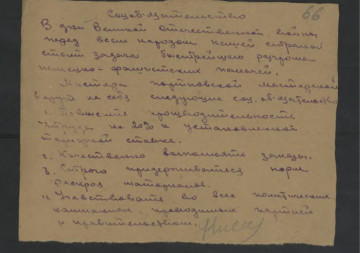 66
Соцобязательство
В дни Великой Отечественной войны
перед всем народом нашей страны
стоит задача быстрейшего разгрома
немецко-фашистских полчищ.
Мастера мастерской
берут на себя следующие соц. обязательства
1. Повысить производительность
труда на 20% к установленной
ставке.
2. Качественно выполнять заказы.
3. Строго придерживаться норм
расхода материалов.
4. Участвовать во всех политических
кампаниях, проводимых партией
и правительством.